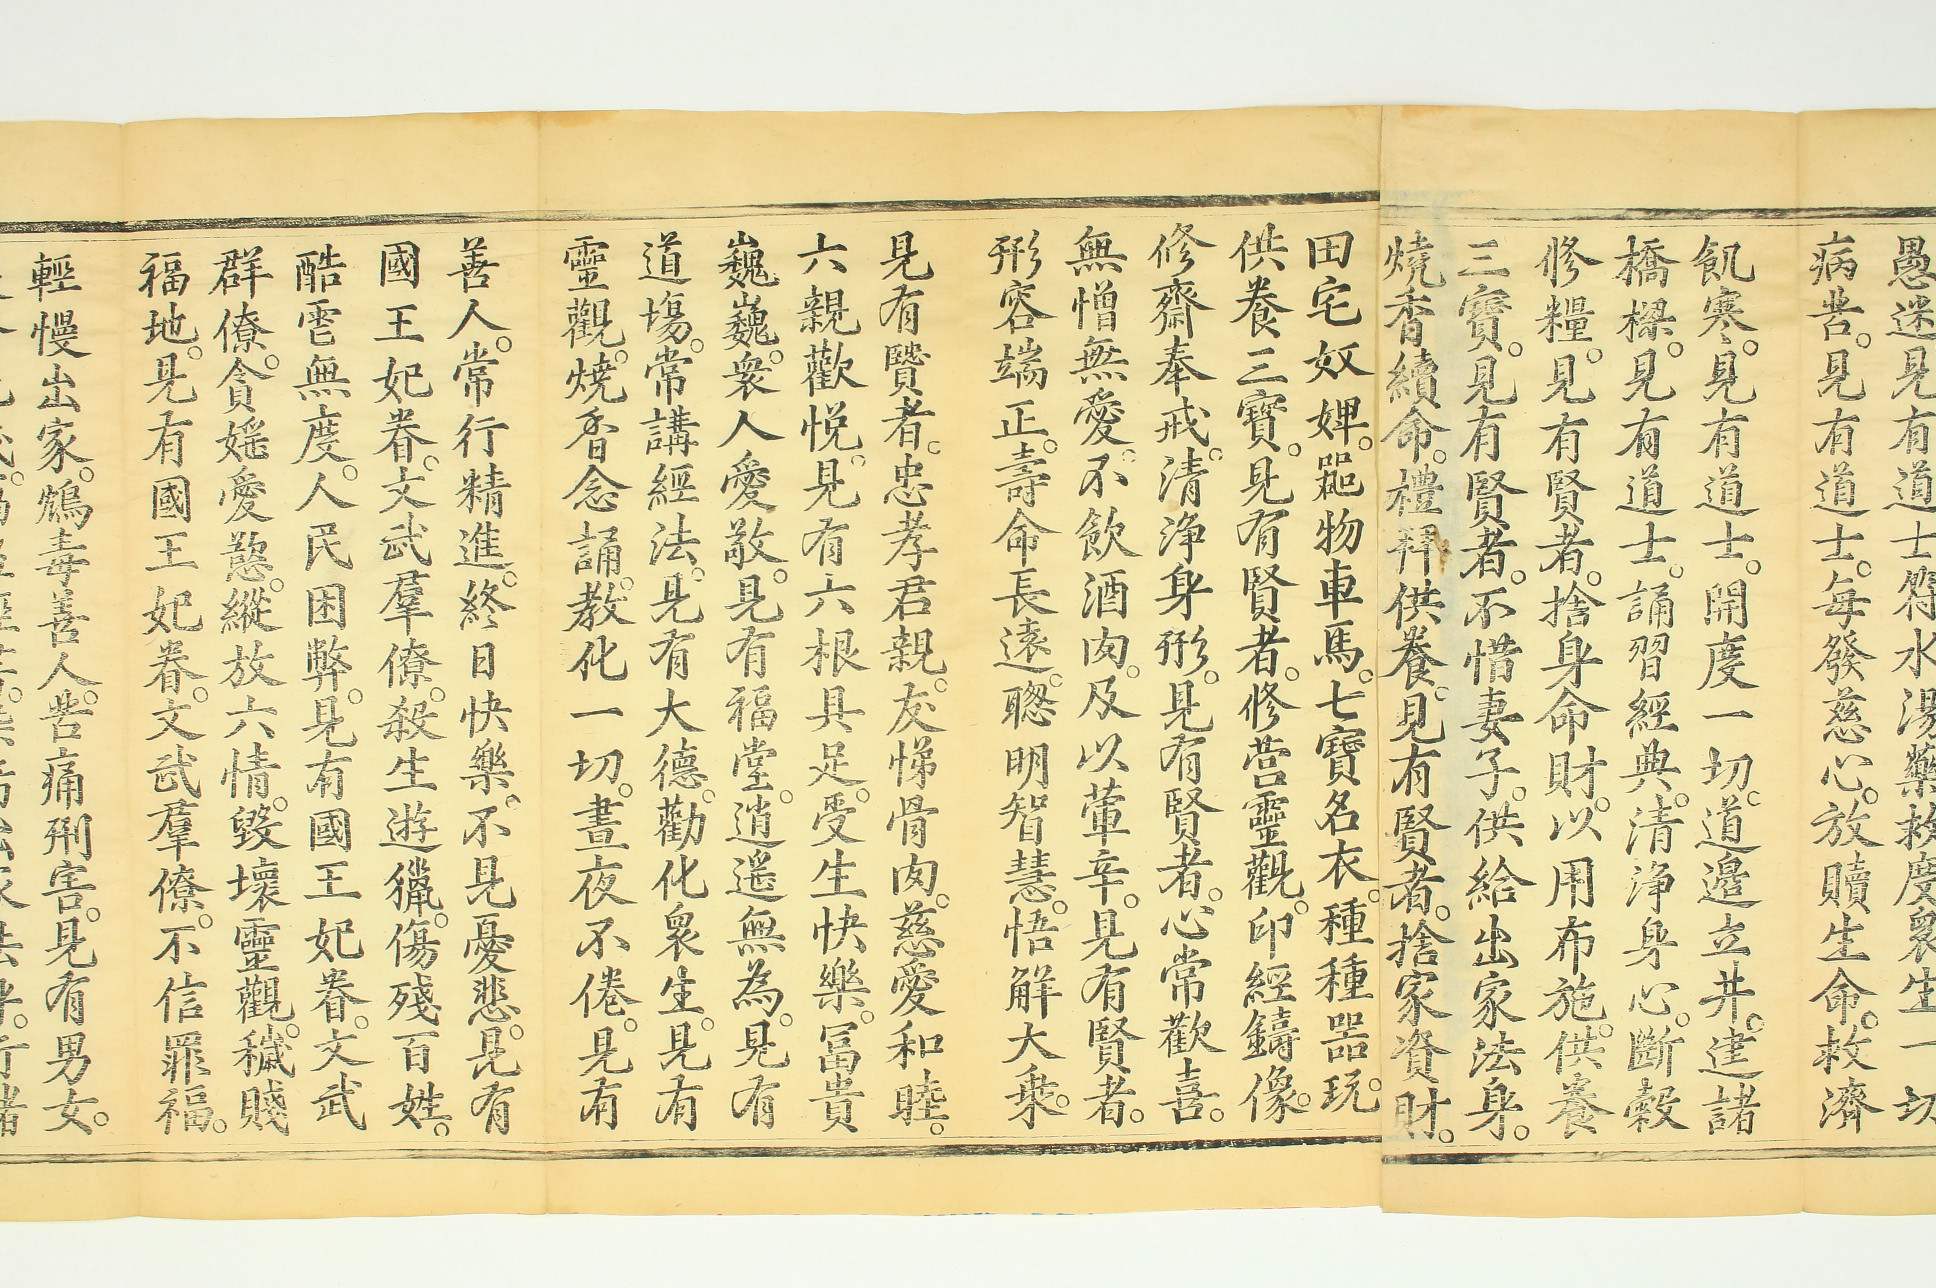 愚迷見有道士符水湯藥救度衆生一切
病苦。見有道士。每發慈心。放贖生命。救濟
飢寒。見有道士。開度一切。道邊立井。建諸
橋樑。見有道士。誦習經典。清淨身心。斷穀
修糧。見有賢者。捨身命財。以用布施。供養
三寶。見有賢者。不惜妻子。供給出家法身。
燒香續命。禮拜供養。見有賢者。捨家資財。
田宅奴婢。噐物車馬。七寶名衣。種種噐玩。
供養三寶。見有賢者。修營靈觀。印經鑄像。
修齋奉戒。清淨身形。見有賢者。心常歡喜。
無憎無愛。不飲酒肉。及以葷辛。見有賢者。
形容端正。壽命長遠。聰明智慧。悟解大乘。
見有賢者。忠孝君親。友悌骨肉。慈愛和睦。
六親歡悅。見有六根具足。受生快樂。冨貴
巍巍。衆人愛敬。見有福堂。逍遥無為。見有
道塲。常講經法。見有大德。勸化衆生。見有
靈觀。燒香念誦。教化一切。晝夜不倦。見有
善人。常行精進。終日快樂。不見憂悲。見有
國王妃眷。文武羣僚。殺生遊獵。傷殘百姓。
酷虐無度。人民困弊。見有國王妃眷。文武
群僚。貪婬愛慾。縱放六情。毀壞靈觀。穢賤
福地。見有國王妃眷。文武羣僚。不信罪福。
輕慢出家。鴆毒善人。苦痛刑害。見有男女。